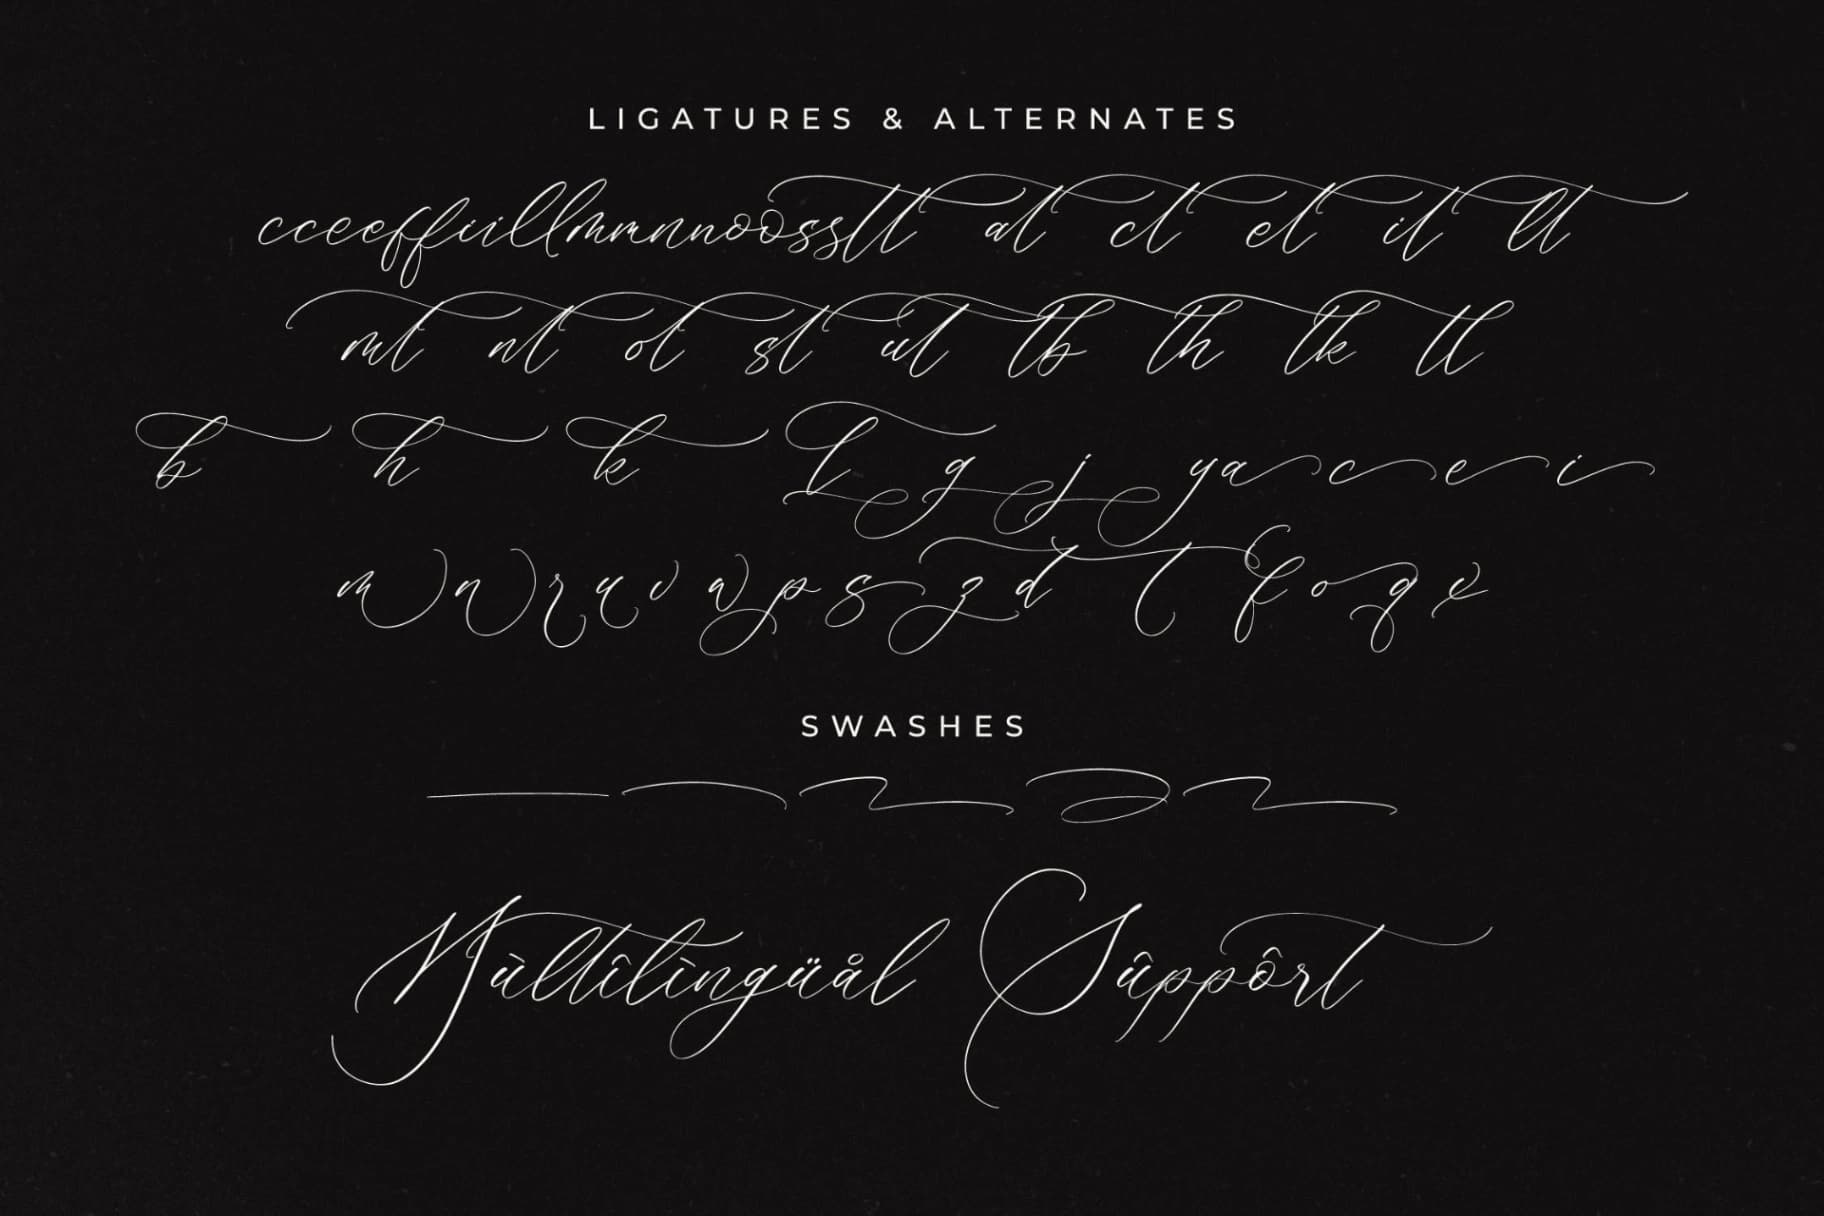 LIGATURES & ALTERNATES
cceeffiillmmnnoosstt at ct et it lt
mt nt ot st ut tb th tk tl
b h k l g j y a c e i
m n r u v w p s z d t f o q x
SWASHES
Mùltîlìngüål Sûppôrt